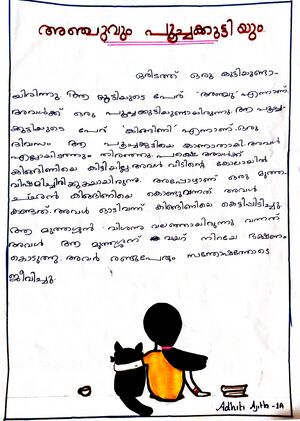 അഞ്ചുവും പൂച്ചക്കുട്ടിയും
ഒരിടത്ത് ഒരു കുട്ടിയുണ്ടാ-
യിരുന്നു. ആ കുട്ടിയുടെ പേര് 'അഞ്ചു' എന്നാണ്.
അവൾക്ക് ഒരു പൂച്ചക്കുട്ടിയുണ്ടായിരുന്നു. ആ പൂച്ച-
ക്കുട്ടിയുടെ പേര് 'കിങ്ങിണി' എന്നാണ്. ഒരു
ദിവസം ആ പൂച്ചക്കുട്ടിയെ കാണാതായി. അവൾ
എല്ലായിടത്തും തിരഞ്ഞു. പക്ഷെ അവൾക്ക്
കിങ്ങിണിയെ കിട്ടിയില്ല. അവൾ വീടിന്റെ കോലായിൽ
വിഷമിച്ചിരിക്കുകയായിരുന്നു. അപ്പോഴാണ് ഒരു മുത്ത-
ച്ഛൻ കിങ്ങിണിയെ കൊണ്ടുവന്നത് അവൾ
കണ്ടത്. അവൾ ഓടിവന്ന് കിങ്ങിണിയെ കെട്ടിപ്പിടിച്ചു.
ആ മുത്തശ്ശൻ വിശന്നു വലഞ്ഞായിരുന്നു വന്നത്
അവൾ ആ മുത്തശ്ശന് വയറ് നിറയെ ഭക്ഷണം
കൊടുത്തു. അവർ രണ്ടുപേരും സന്തോഷത്തോടെ
ജീവിച്ചു.
Adhiti Ajith-1A